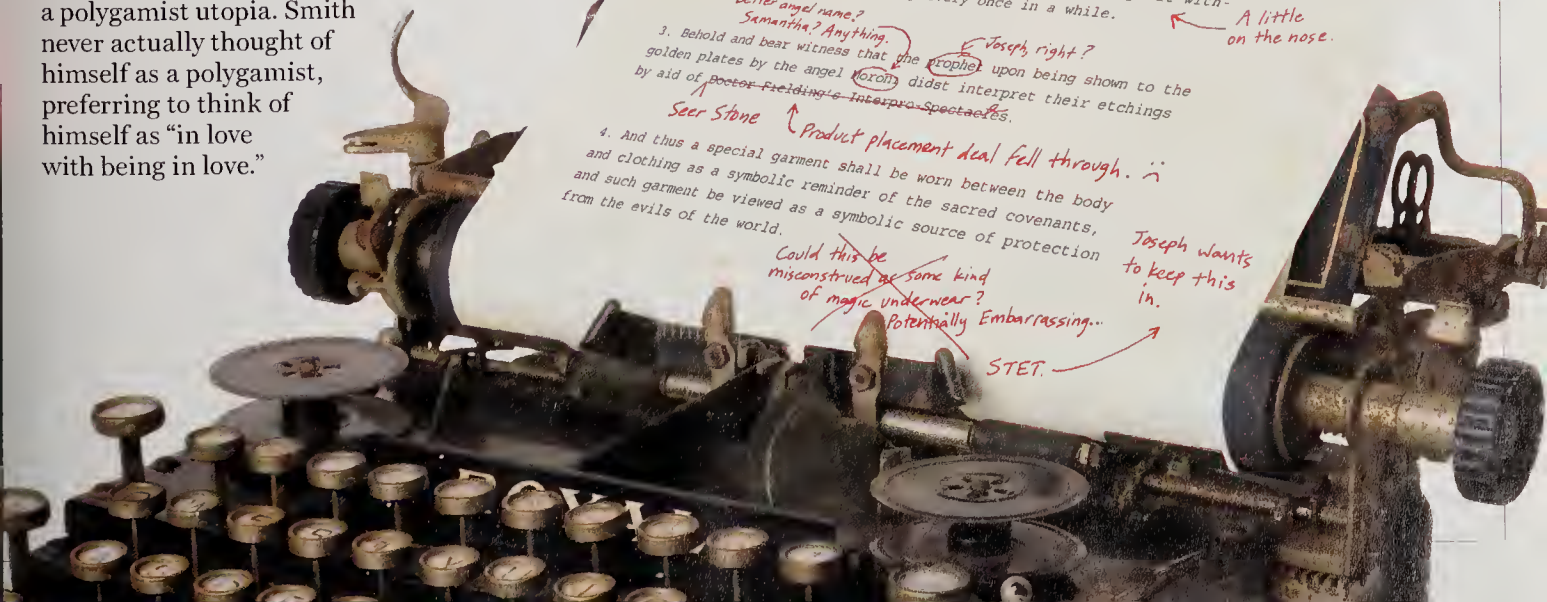 a polygamist utopia. Smith
never actually thought of
himself as a polygamist,
preferring to think of
himself as “in love
with being in love.”
once in a while.
A little
on the nose.
Better angel name?
Samantha? Anything.
Joseph, right?
3. Behold and bear witness that the prophet upon being shown to the
golden plates by the angel Moroni didst interpret their etchings
by aid of Doctor Fielding's Interpro-Spectacles.
Seer Stone
Product placement deal fell through. :(
4. And thus a special garment shall be worn between the body
and clothing as a symbolic reminder of the sacred covenants,
and such garment be viewed as a symbolic source of protection
from the evils of the world.
Could this be
misconstrued as some kind
of magic underwear?
Potentially Embarrassing...
STET.
Joseph wants
to keep this
in.